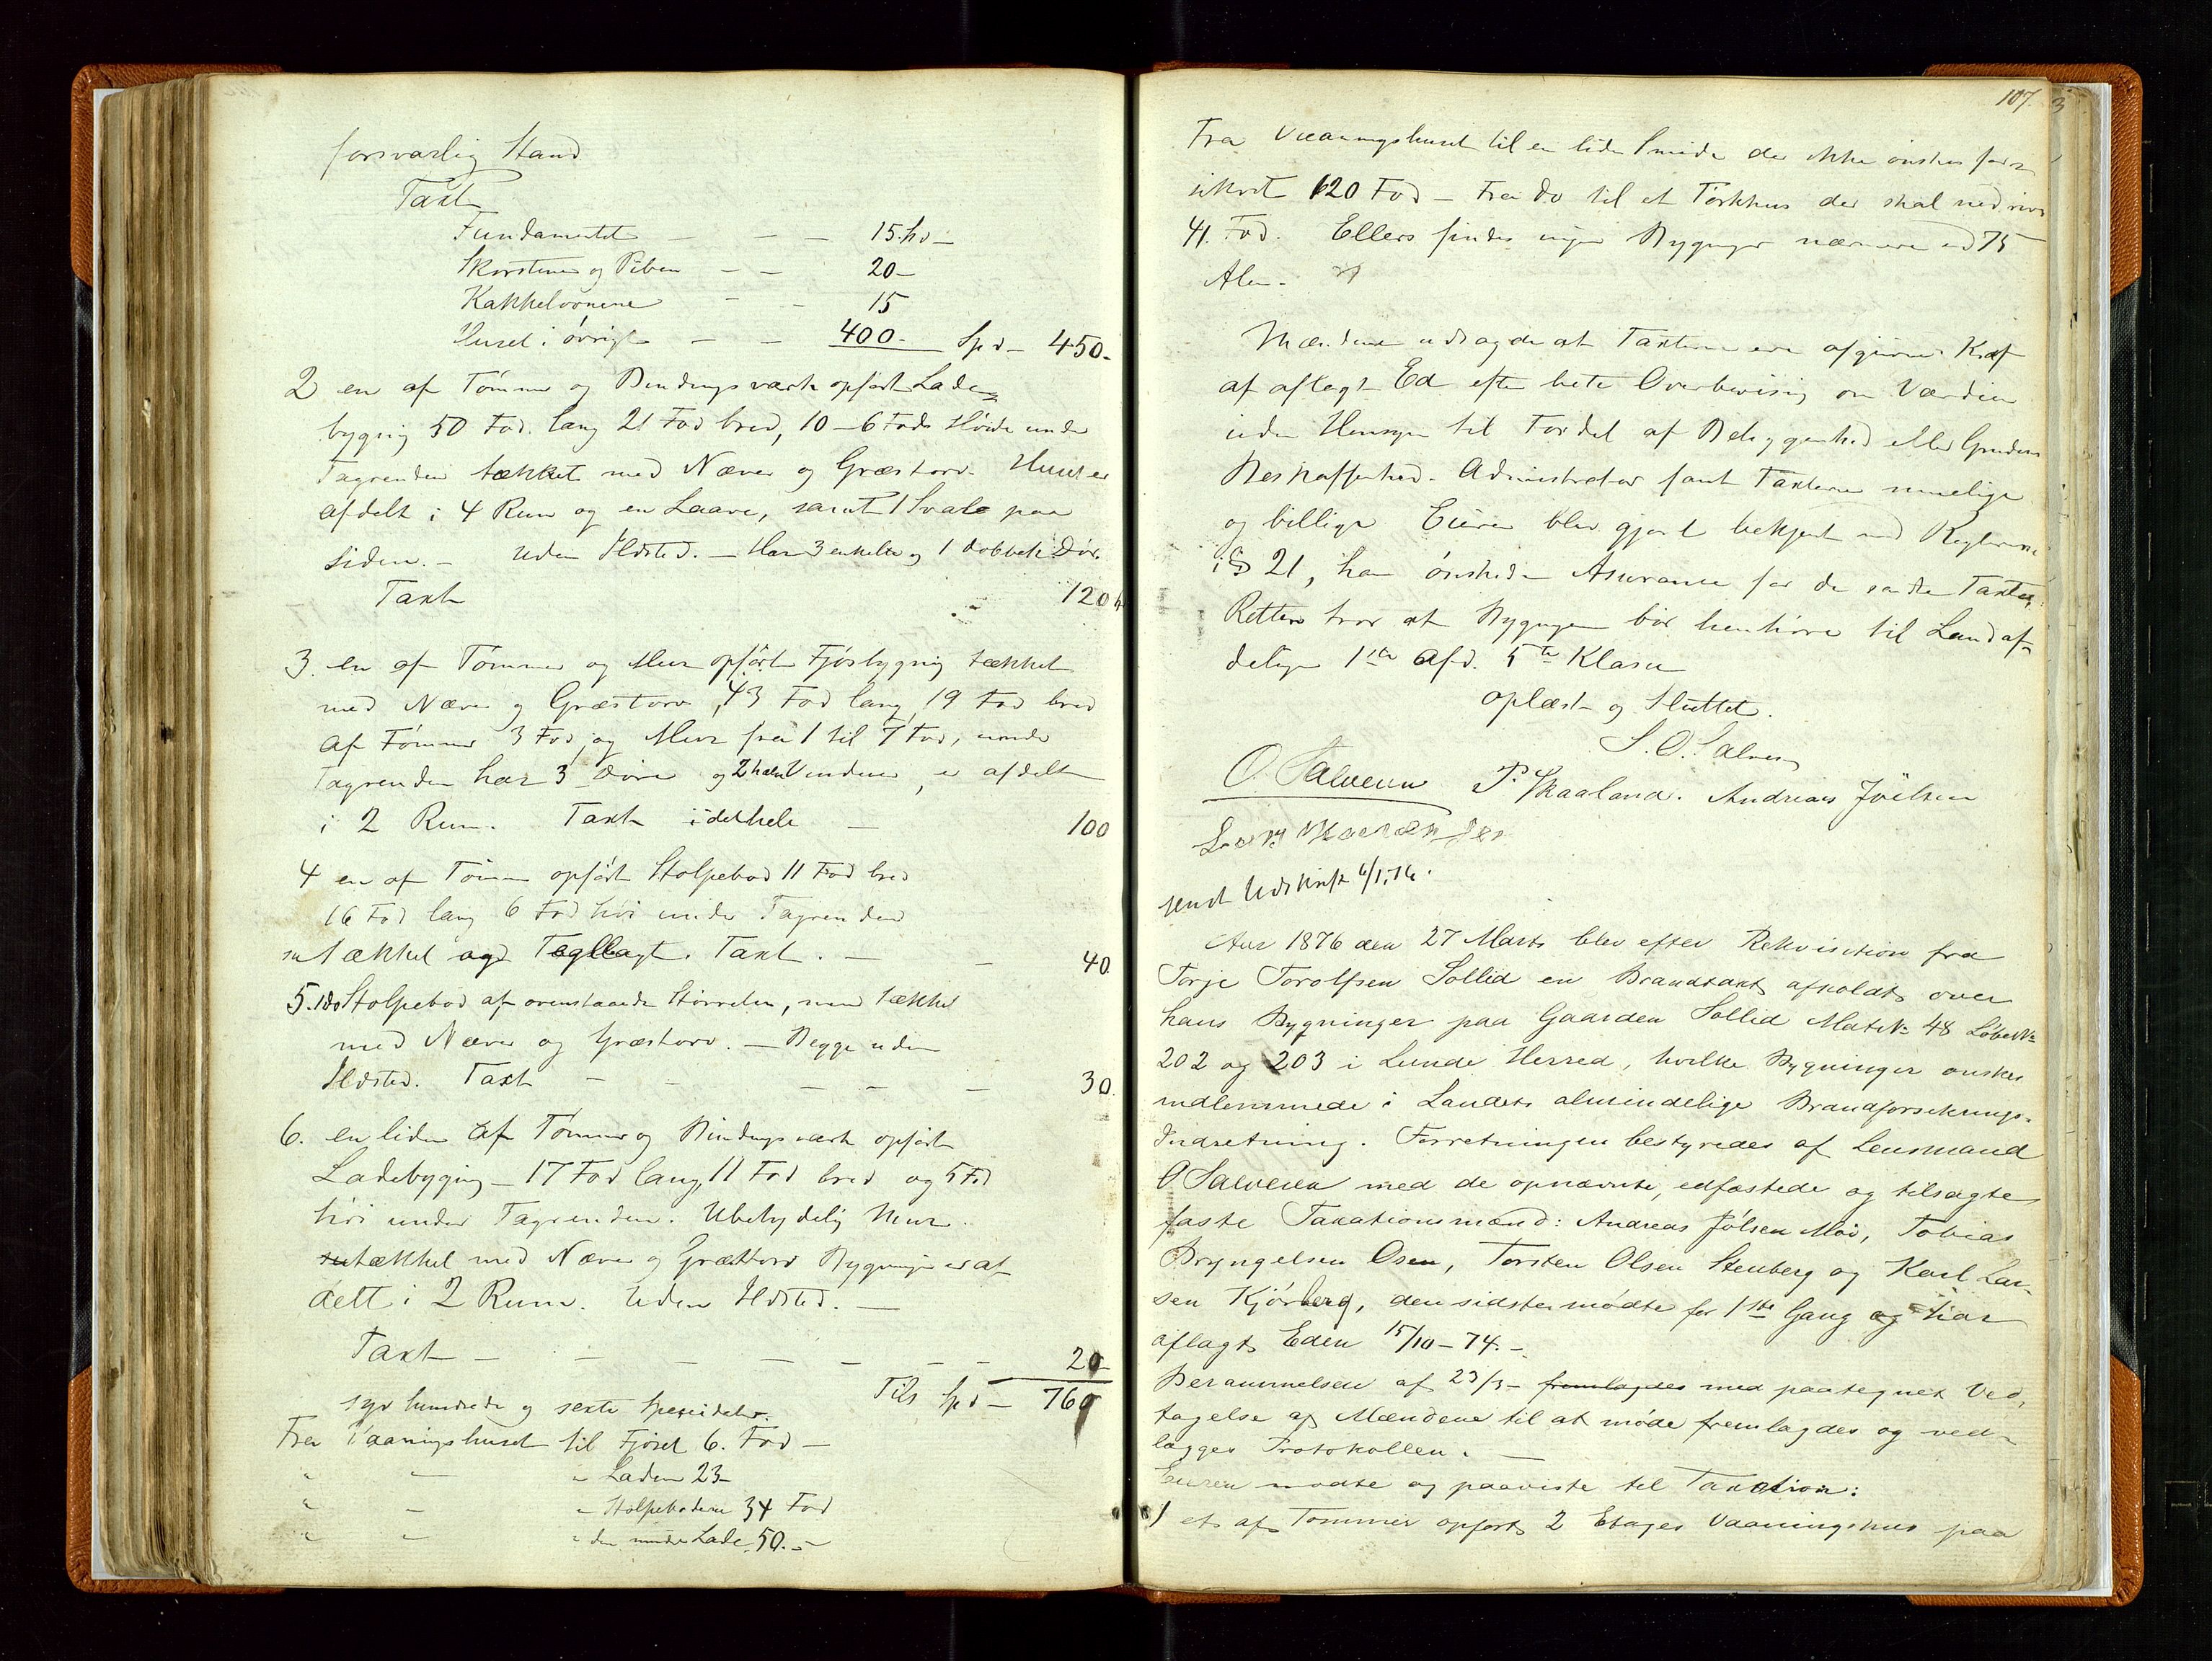 forsvarlig Stand
Taxt
Fundamentet — — 15. Spd —
Skorstene og Piben — — 20 —
Kakkelovnene — — 15
Huset i övrigt — — 400. — Spd — 450.
2 en af Tömmer og Bindingsværk opfört Lade-
bygnig 50 Fod. lang 21 Fod bred, 10 - 6 Fods Höide under
Tagrenden tækket med Næver og Græstorv. Huset er
afdelt i 4 Rum og en Laave, samt 1 Sval paa
Siden. — Uden Ildsted. — Har 3 enkelte og 1 dobbelt Dör.
Taxt 120
3. en af Tömmer og Mur opfört Fjösbygnig tækket
med Næver og Græstorv, 43 Fod lang, 19 Fod bred
af Tömmer 3 Fod, og Mur fra 1 til 7 Fod, under
Tagrenden har 3 Döre og 2 halve Vinduer, er afdelt
i 2 Rum. Taxt i det hele — 100
4 en af Tömmer opfört Stolpebod 11 Fod bred
16 Fod lang 6 Fod höi under Tagrenden
tækket og Tagllagt. Taxt. — — 40
5. 1 do Stolpebod af ovenstaaende Störrelse, men tækket
med Næver og Græstorv. — Begge uden
Ildsted. Taxt — — — — — 30.
6. en liden af Tömmer og Bindingsværk opfört
Ladebygnig — 17 Fod lang, 11 Fod bred og 5 Fod
höi under Tagrenden. Ubetydelig Mur.
tækket med Næver og Græstorv Bygningen er af
delt i 2 Rum. Uden Ildsted. —
Taxt — — — — — — — 20
Tils Spd — 760
syv hundrede og sexti Speciedaler.
Fra Vaaningshuset til Fjöset 6. Fod —
" — " Laden 23 —
" — " Stolpeboderne 34 Fod
" — " den mindre Lade 50. —
107.
Fra Vaaningshuset til en liden Smidie der ikke önskes for-
sikret 120 Fod — Fra do til et Törkhus der skal nedrives
41. Fod. Ellers findes ingen Bygninger nærmere end 75
Alen.
Mændene udsagde at Taxterne ere afgivne i Kraf
af aflagt Ed efter bedste Overbevisnig om Værdien
uden Hensyn til Fordel af Beliggenhed eller Grundens
Beskaffenhed. Administrator fant Taxterne rimelige
og billige Eieren blev gjort bekjent med Reglerne
i § 21, han önskede Assurance for de satte Taxter.
Retten tror at Bygningen bör henhöre til Landaf-
delign 1ste Afd. 5te Klasse
oplæst og Sluttet.
S. O. Salvesen
O. Salvesen P. Skaaland. Andreas Jöelsen
sendt Udskrift 6/1. 76.
Aar 1876 den 27 Marts blev efter Rekvisition fra
Torje Torolfsen Sollid en Brandtaxt afholdt over
hans Bygninger paa Gaarden Sollid Mats№ 48 Löbe№
202 og 203 i Lunde Herred, hvilke Bygninger önskes
indlemmede i Landets almindelige Brandforsikrings-
Indretning. Forretningen bestyredes af Lensmand
O Salvesen med de opnævnte, edfæstede og tilsagte
faste Taxationsmænd: Andreas Jölsen Moi, Tobias
Bryngelsen Osen, Torsten Olsen Stenberg og Karl Lar-
sen Kjörberg, den sidste mödte for 1ste Gang og har
aflagt Eden 15/10 - 74. —
Berammelsen af 23/3 - fremlagdes med paategnet Ved-
tagelse af Mændene til at möde fremlagdes og ved-
lægges Protokollen. —
Eieren mödte og paaviste til Taxation:
1) et af Tömmer opfört 2 Etages Vaaningshus paa